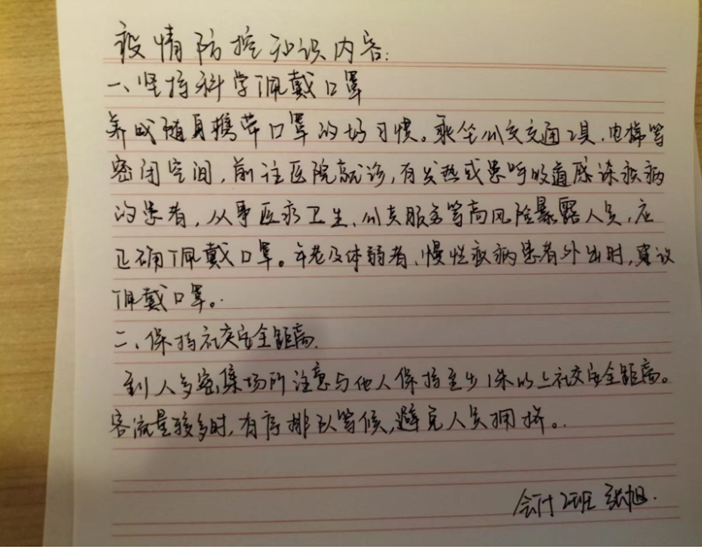 疫情防控知识内容:
一、坚持科学佩戴口罩
养成随身携带口罩的好习惯。乘坐公交交通工具、电梯等
密闭空间,前往医院就诊,有发热或患呼吸道感染疾病
的患者,从事医疗卫生、公共服务等高风险暴露人员,应
正确佩戴口罩。年老及体弱者、慢性疾病患者外出时,建议
佩戴口罩。
二、保持社交安全距离
到人多密集场所注意与他人保持至少1米以上社交安全距离。
客流量较多时,有序排队等候,避免人员拥挤。
会计2班 张旭.